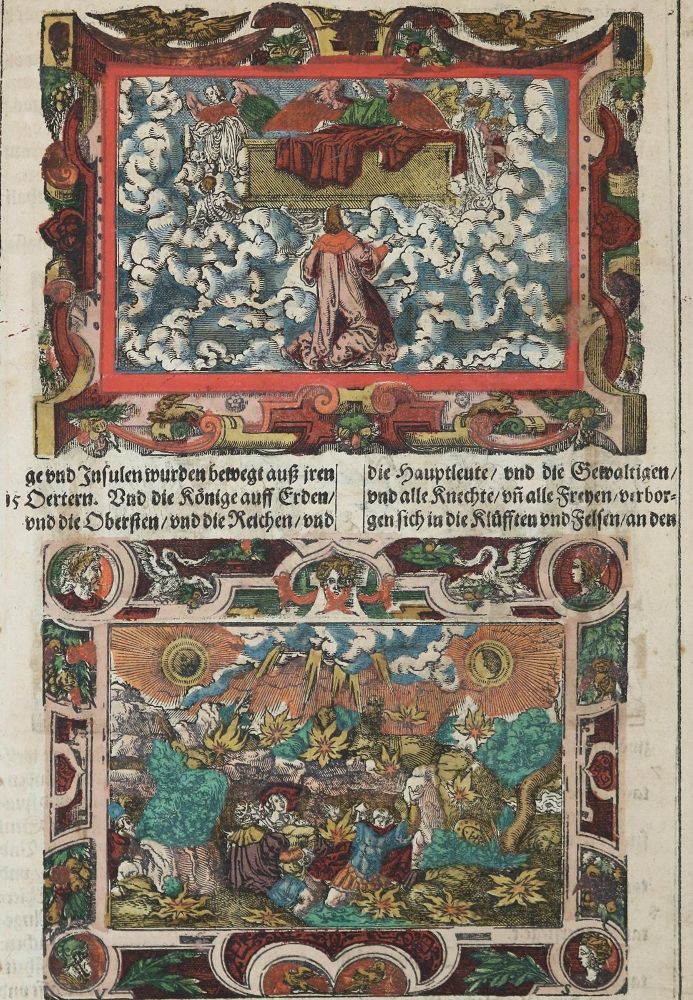 ge vnd Insulen wurden bewegt auß jren
15 Oertern. Vnd die Könige auff Erden/
vnd die Obersten/ vnd die Reichen/ vnd
die Hauptleute/ vnd die Gewaltigen/
vnd alle Knechte/ vn̄ alle Freyen/ verbor-
gen sich in die Klüfften vnd Felsen/ an den
V S